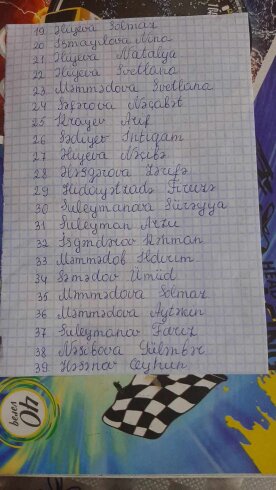 19 Əliyeva Solmaz
20 İsmayılova Nina
21 Əliyeva Natalya
22 Əliyeva Svetlana
23 Məmmədova Svetlana
24 Səfərova Nəcabət
25 Krayev Arif
26 Sədiyev İntiqam
27 Əliyeva Nəcibə
28 Əsgərova Zərifə
29 Hidayətzadə Firuzə
30 Suleymanova Sürəyya
31 Suleyman Arzu
32 İsgəndərov Kamran
33 Məmmədov İldırım
34 Səmədov Ümüd
35 Məmmədova Solmaz
36 Məmmədova Aytəkin
37 Suleymanov Faruz
38 Nəsibova Gülənbər
39 Həsənov Ceyhun
40